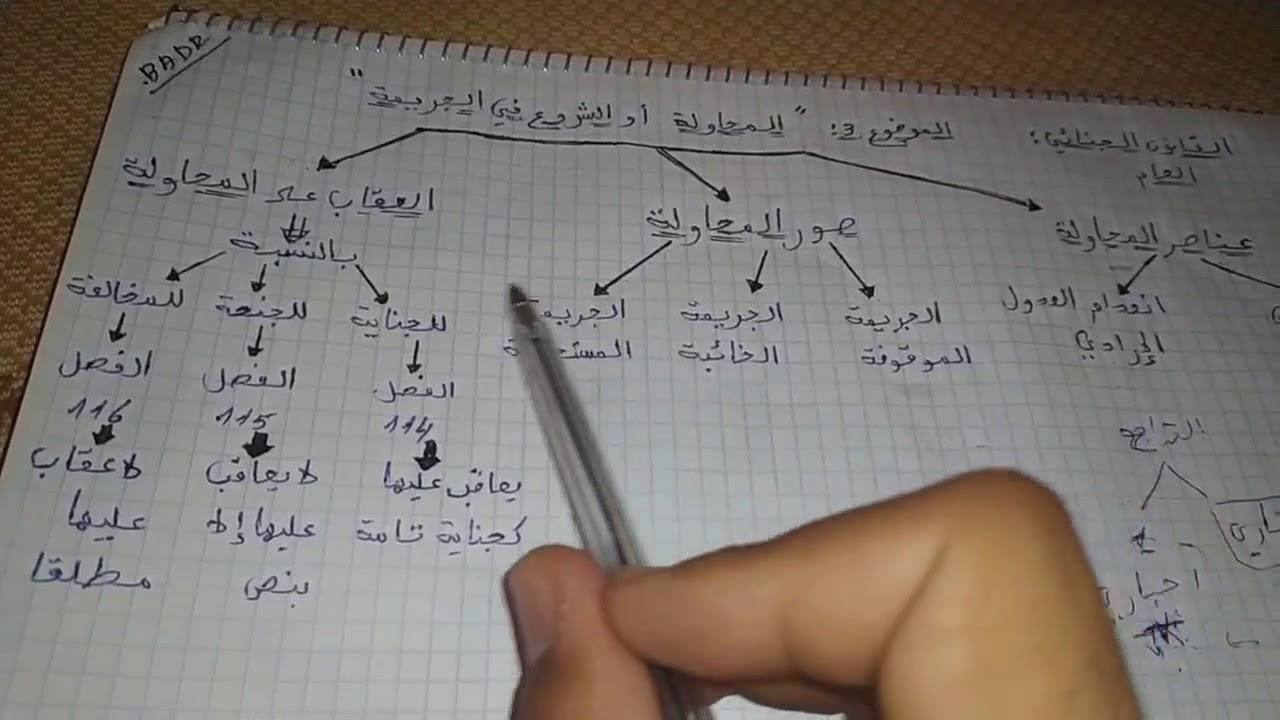 BADR
القانون الجنائي:
العام
الموضوع 3: "المحاولة أو الشروع في الجريمة"
عناصر المحاولة
انعدام العدول
الإرادي
التراجع
صور المحاولة
الجريمة
الموقوفة
الجريمة
الخائبة
الجريمة
العقاب على المحاولة
بالنسبة
للجناية
الفصل
114
يعاقب عليها
كجناية تامة
للجنحة
الفصل
115
لا يعاقب
عليها إلا
بنص
للمخالفة
الفصل
116
لا عقاب
عليها
مطلقا